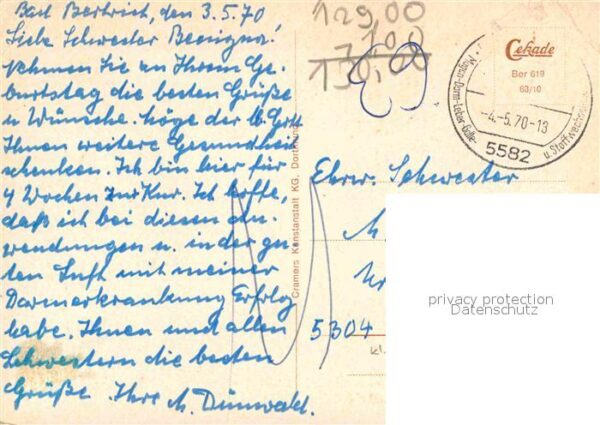 Bad Bertrich, den 3.5.70
Liebe Schwester Benigna!
Nehmen Sie zu Ihrem Ge-
burtstag die besten Grüße
u Wünsche. Möge der lb. Gott
Ihnen weitere Gesundheit
schenken. Ich bin hier für
4 Wochen zur Kur. Ich hoffe,
daß ich bei diesen An-
wendungen u. in der gu-
ten Luft mit meiner
Darmerkrankung Erfolg
habe. Ihnen und allen
Schwestern die besten
Grüße. Ihre M. Dünwald.
129,00
1,00
130,00
Cramers Kunstanstalt KG, Dortmund
Cekade
Ber 619
60/10
Magen-Darm-Leber-Galle-
u. Stoffwechsel
-4.-5.70-13
5582
Ehrw. Schwester
M
5304
kl.
privacy protection
Datenschutz